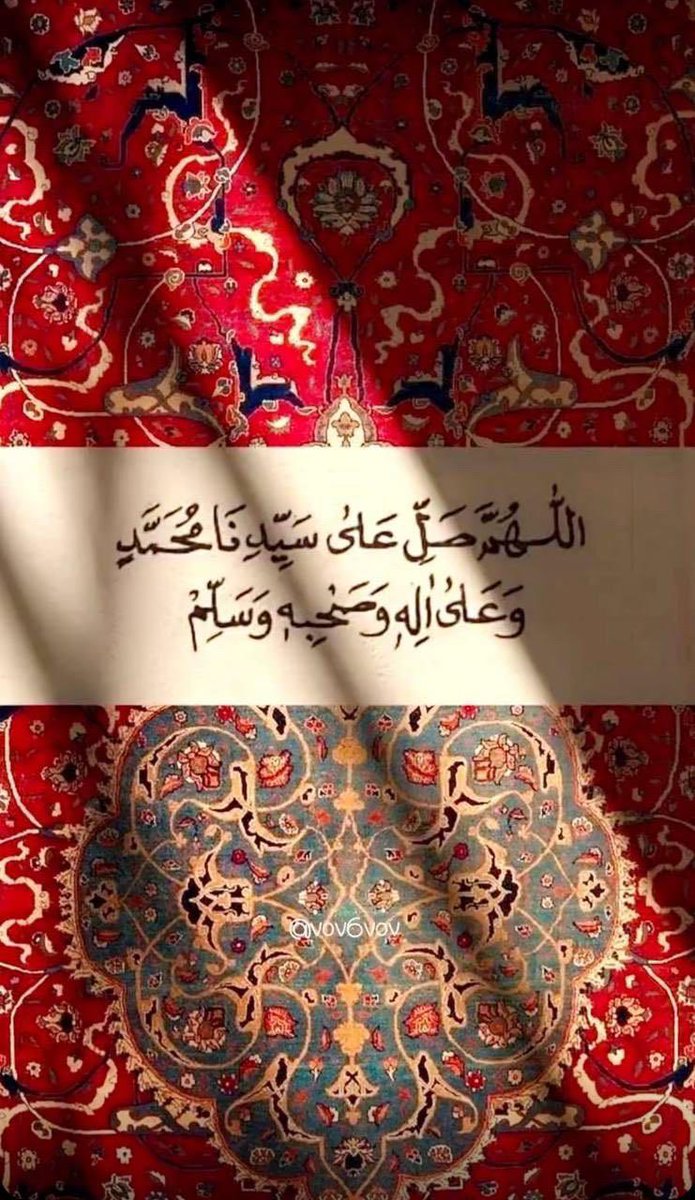 اللّٰهُمَّ صَلِّ عَلىٰ سَيِّدِنَا مُحَمَّدٍ
وَعَلىٰ اٰلِهٖ وَصَحْبِهٖ وَسَلِّمْ
@vov6vov